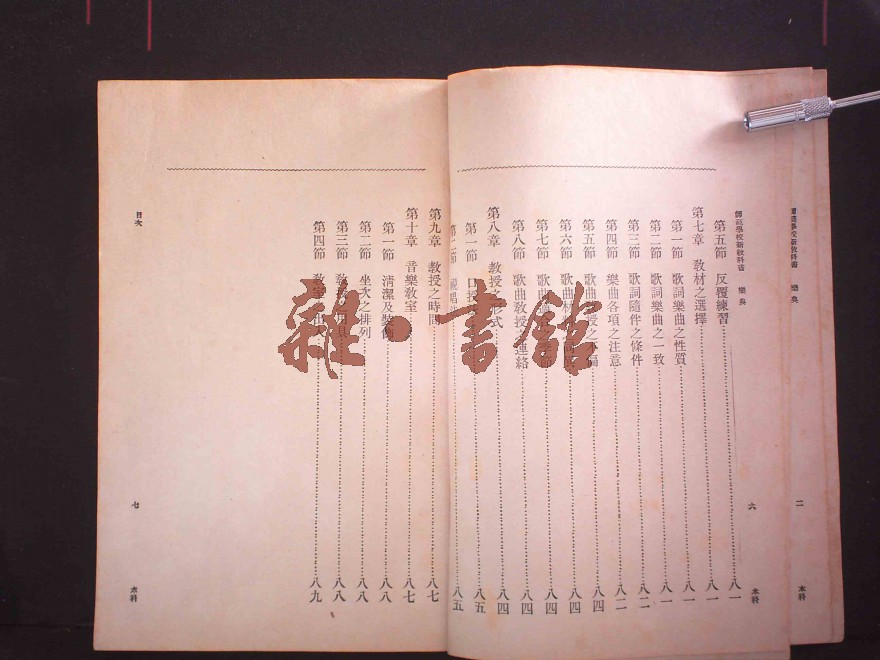 師範學校新教科書 樂典
六
本科
第五節 反覆練習 八一
第七章 教材之選擇 八一
第一節 歌詞樂曲之性質 八一
第二節 歌詞樂曲之一致 八一
第三節 歌詞隨伴之條件 八二
第四節 樂曲各項之注意 八二
第五節 歌曲 授之 八四
第六節 歌曲材 八四
第七節 歌曲 八四
第八節 歌曲教授 連絡 八四
第八章 教授之形式 八四
第一節 口授 八五
第二節 視唱 八五
第九章 教授之時間 八七
第十章 音樂教室 八七
第一節 清潔及裝飾 八八
第二節 坐次之排列 八八
第三節 教 具 八八
第四節 教室 出入 八九
目次
七
本科
二
本科
樂典
雜·書館